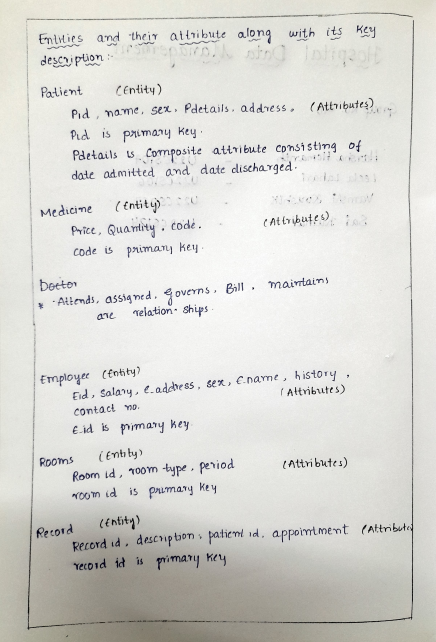 Entities and their attribute along with its key
description:-
Patient (Entity)
Pid, name, sex, Pdetails, address. (Attributes)
Pid is primary key.
Pdetails is composite attribute consisting of
date admitted and date discharged.
Medicine (Entity)
Price, Quantity, code. (Attributes)
code is primary key.
Doctor
* Attends, assigned, governs, Bill, maintains
are relation-ships.
Employee (Entity)
Eid, salary, e-address, sex, E.name, history,
contact no. (Attributes)
E-id is primary key.
Rooms (Entity)
Room id, room type, period (Attributes)
room id is primary key
Record (Entity)
Record id, description, patient id, appointment (Attribute
record id is primary key